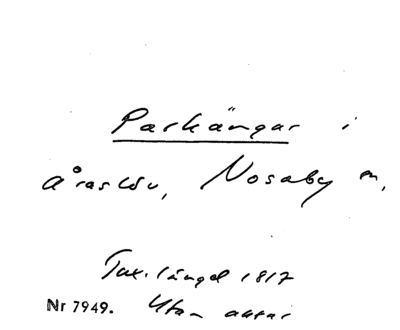 Parkängar i
Åraslöv, Nosaby sn,
Tax.längd 1817
Nr 7949. Utan